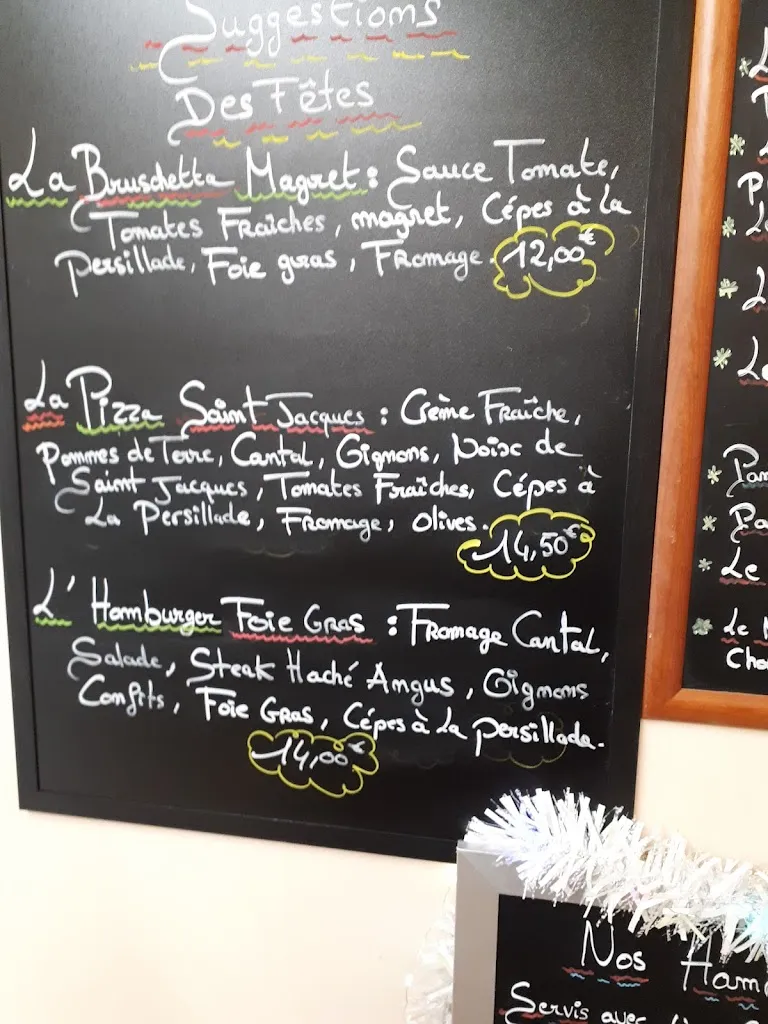 Suggestions
Des Fêtes
La Bruschetta Magret : Sauce Tomate,
Tomates Fraîches, magret, Cépes à la
Persillade, Foie gras, Fromage. 12,00€
La Pizza Saint Jacques : Crème Fraîche,
Pommes de Terre, Cantal, Oignons, Noix de
Saint Jacques, Tomates Fraîches, Cépes à
La Persillade, Fromage, olives.
14,50€
L' Hamburger Foie Gras : Fromage Cantal,
Salade, Steak Haché Angus, Oignons
Confits, Foie Gras, Cépes à La Persillade.
14,00€
Le
Le
Nos Ham
Servis avec